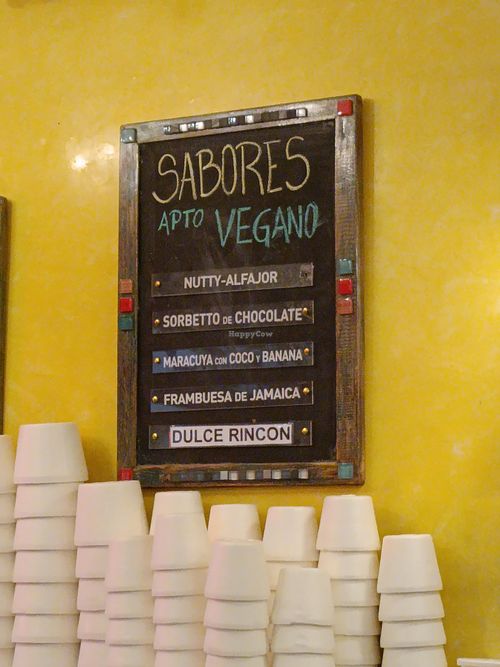 SABORES
APTO VEGANO
NUTTY-ALFAJOR
SORBETTO DE CHOCOLATE
HappyCow
MARACUYA CON COCO Y BANANA
FRAMBUESA DE JAMAICA
DULCE RINCON